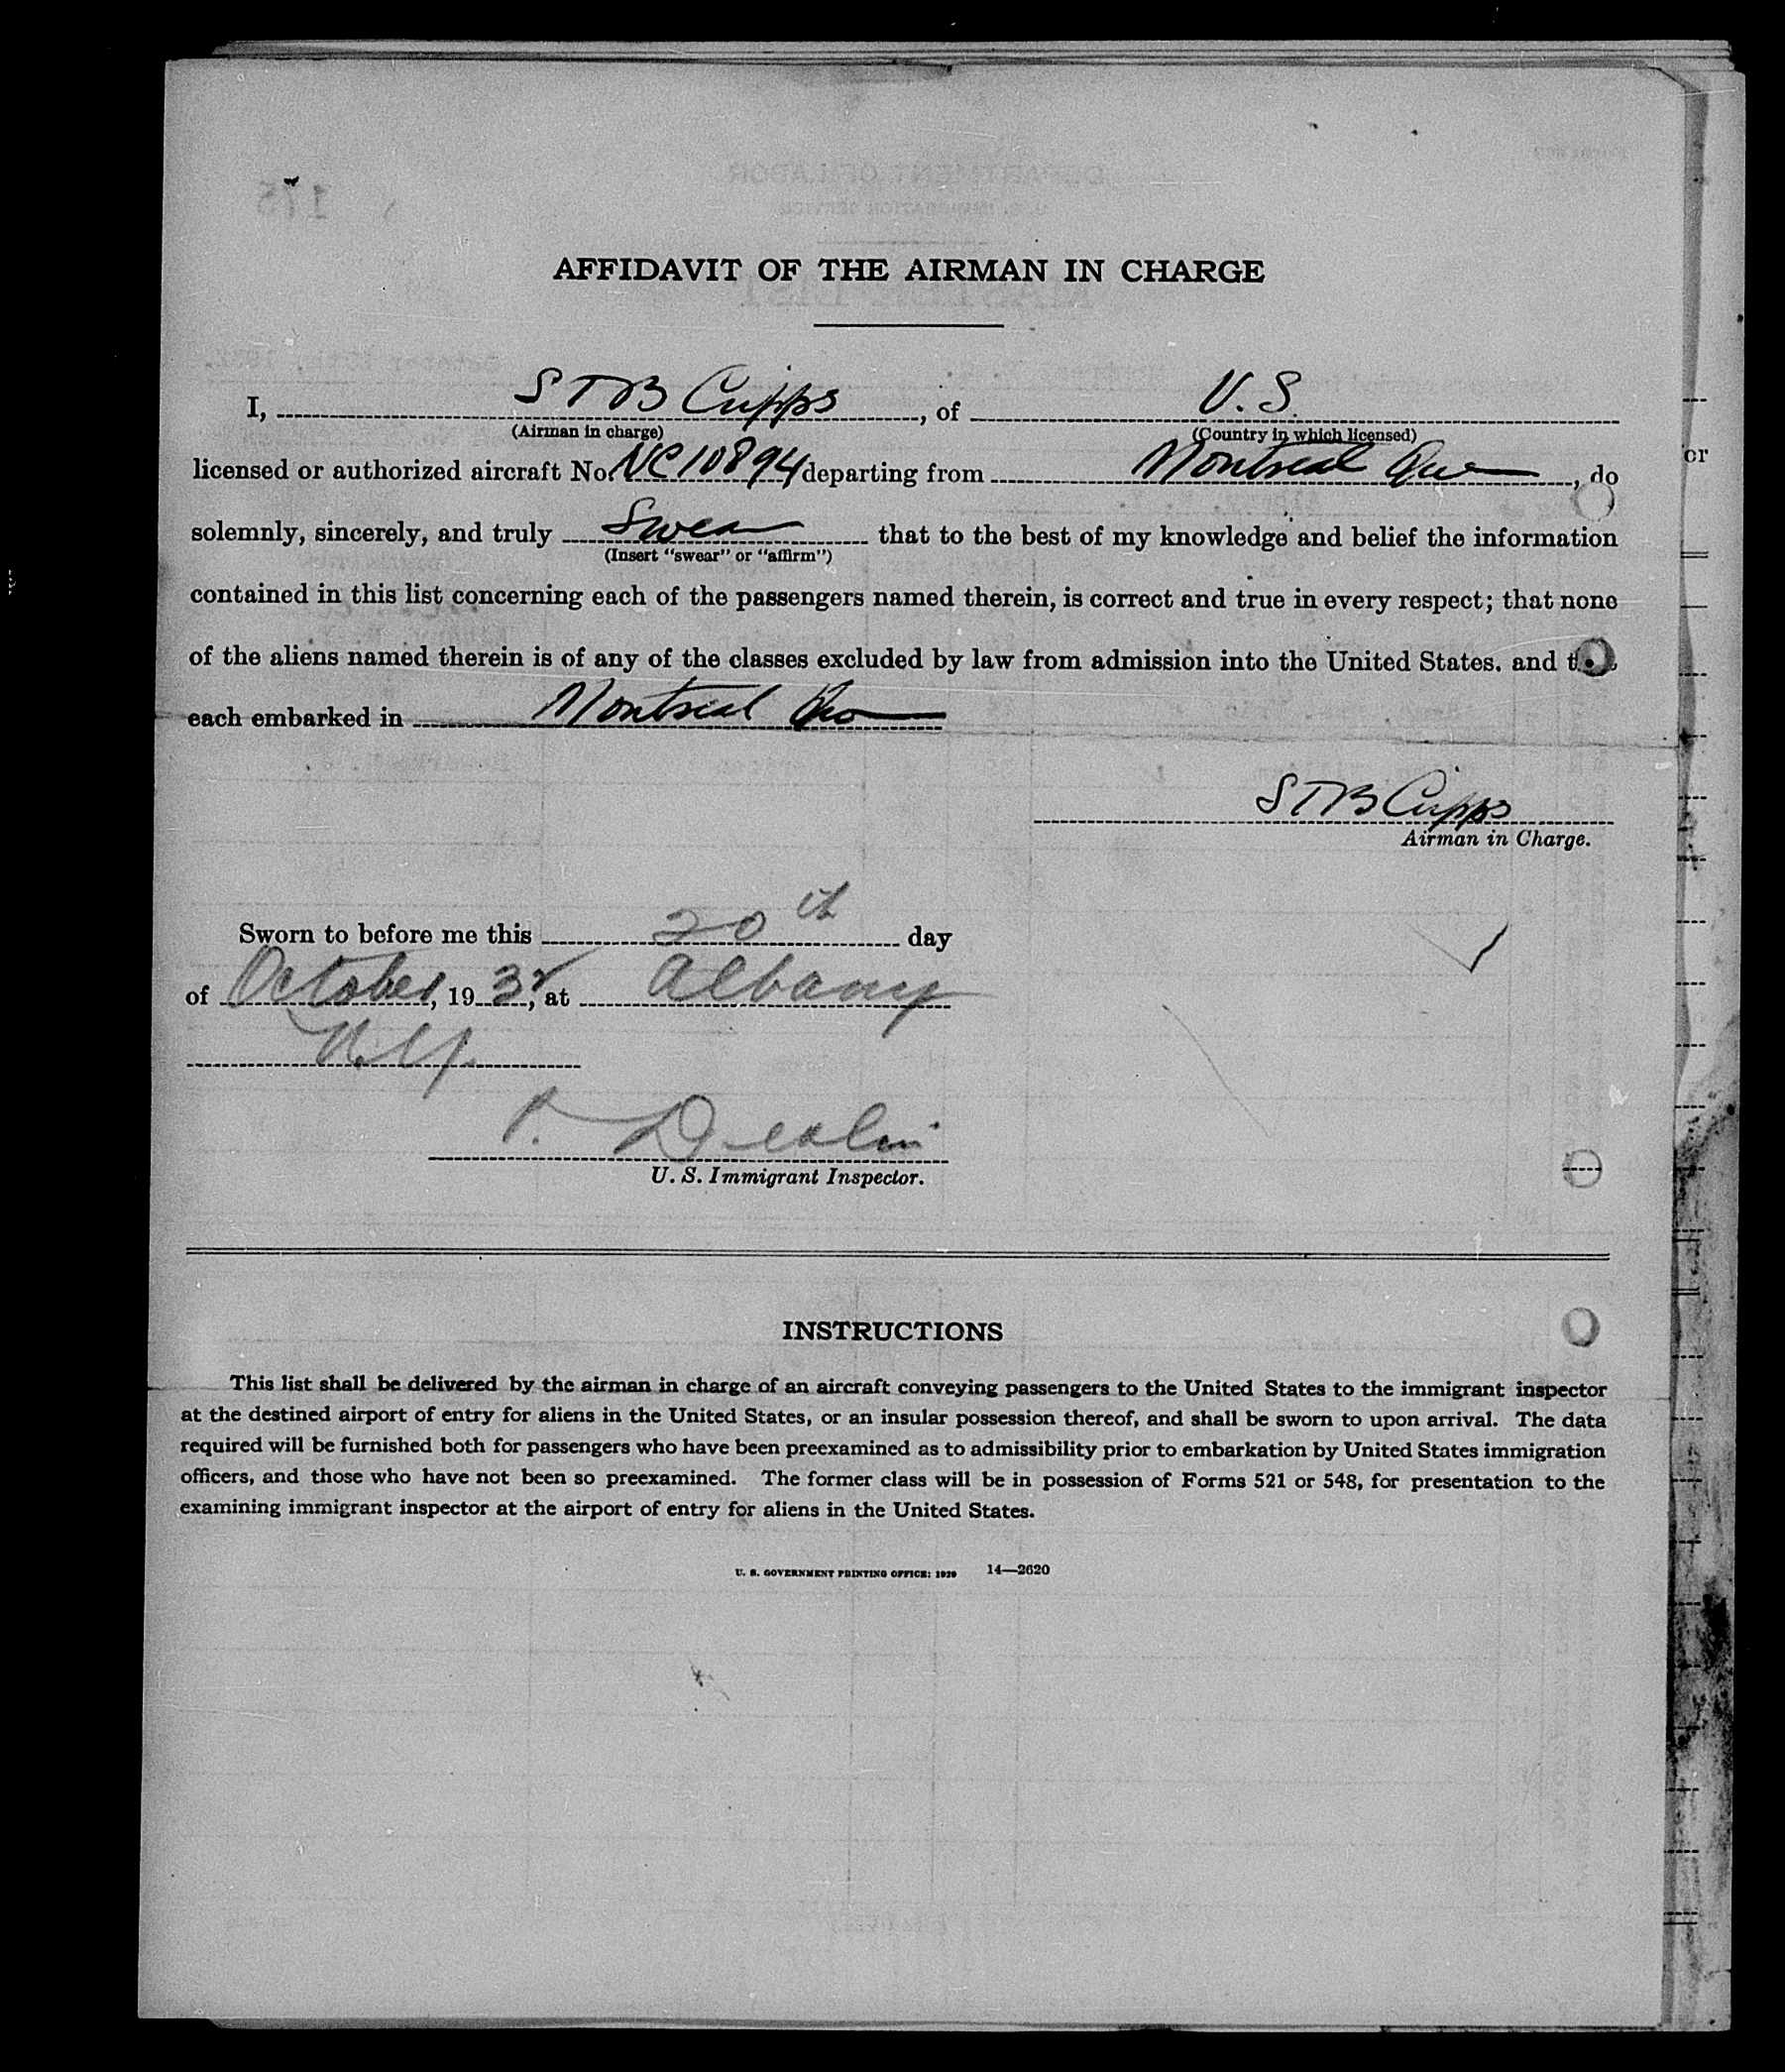 AFFIDAVIT OF THE AIRMAN IN CHARGE
I, S T B Cripps, of U. S.
(Airman in charge) (Country in which licensed)
licensed or authorized aircraft No. NC10894 departing from Montreal Que, do
solemnly, sincerely, and truly Swear that to the best of my knowledge and belief the information
(Insert "swear" or "affirm")
contained in this list concerning each of the passengers named therein, is correct and true in every respect; that none
of the aliens named therein is of any of the classes excluded by law from admission into the United States. and
each embarked in Montreal Que
S T B Cripps
Airman in Charge.
Sworn to before me this 20th day
of October, 1932, at Albany
N.Y.
U. S. Immigrant Inspector.
INSTRUCTIONS
This list shall be delivered by the airman in charge of an aircraft conveying passengers to the United States to the immigrant inspector
at the destined airport of entry for aliens in the United States, or an insular possession thereof, and shall be sworn to upon arrival. The data
required will be furnished both for passengers who have been preexamined as to admissibility prior to embarkation by United States immigration
officers, and those who have not been so preexamined. The former class will be in possession of Forms 521 or 548, for presentation to the
examining immigrant inspector at the airport of entry for aliens in the United States.
U. S. GOVERNMENT PRINTING OFFICE: 1929 14—2620
or